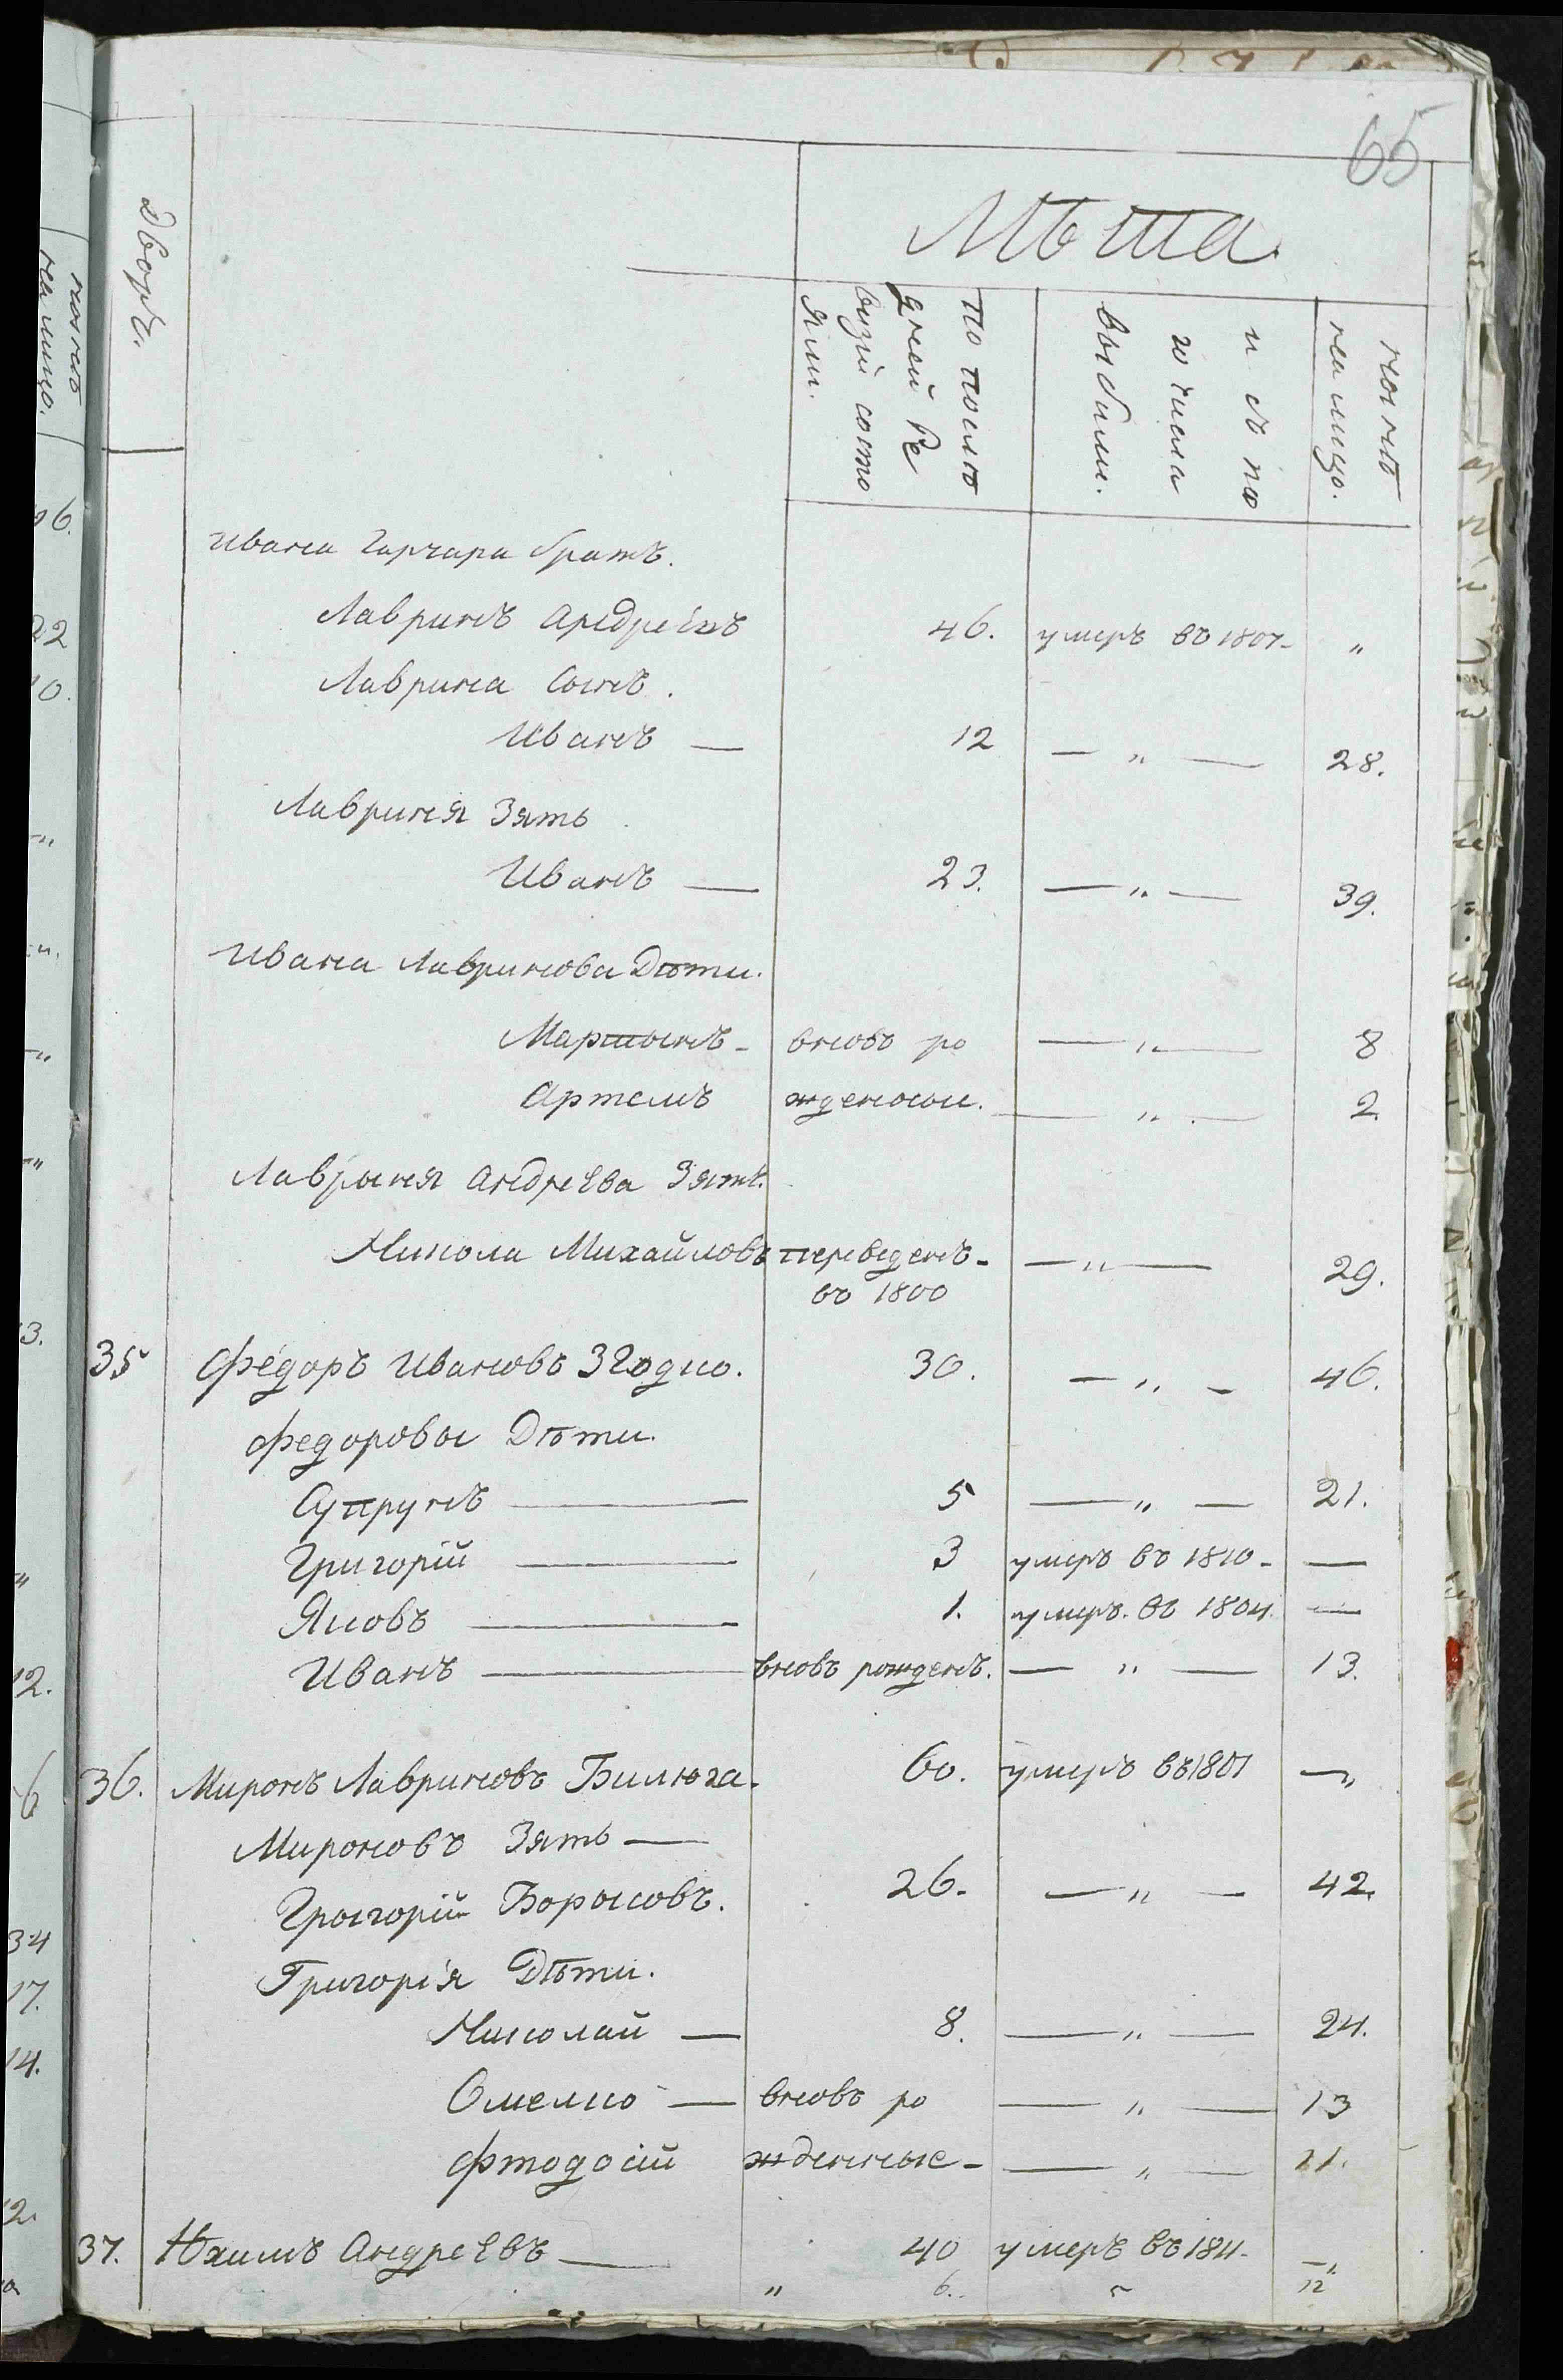 65
Лѣта
Дворъ.
по послѣ
дней Ре
визіи состо
яли.
изъ то
го числа
выбыли.
нонѣ
на лицо.
Ивана Гарчара братъ.
Лавринъ Андреевъ 46. умеръ въ 1807 - „
Лаврина сынъ.
Иванъ — 12 — „ — 28.
Лавриня Зять
Иванъ — 23. — „ — 39.
Ивана Лавринова Дѣти.
Мартынъ - вновь ро — „ — 8
Артемъ жденныи. — „ — 2
Лаврыня Андреева Зять.
Никола Михайловъ переведенъ - — „ — 29.
въ 1800
35 Федоръ Ивановъ 30. — „ — 46.
Федоровы Дѣти.
Супрунъ — 5 — „ — 21.
Григорій — 3 умеръ въ 1810 - —
Яковъ — 1. умеръ. въ 1804 —
Иванъ — вновь рожденъ. — „ — 13.
36. Миронъ Лавриновъ Билюга. 60. умеръ въ 1801 — „
Мироновъ Зять —
Грыгорій Борысовъ. 26. — „ — 42.
Григорія Дѣти.
Николай — 8. — „ — 24.
Омелко — вновь ро — „ — 13
Фтодосій жденные - — „ — 11.
37. Юхимъ Андреевъ — 40 умеръ въ 1811 - — „
„ 6. 12
нонѣ
на лицо.